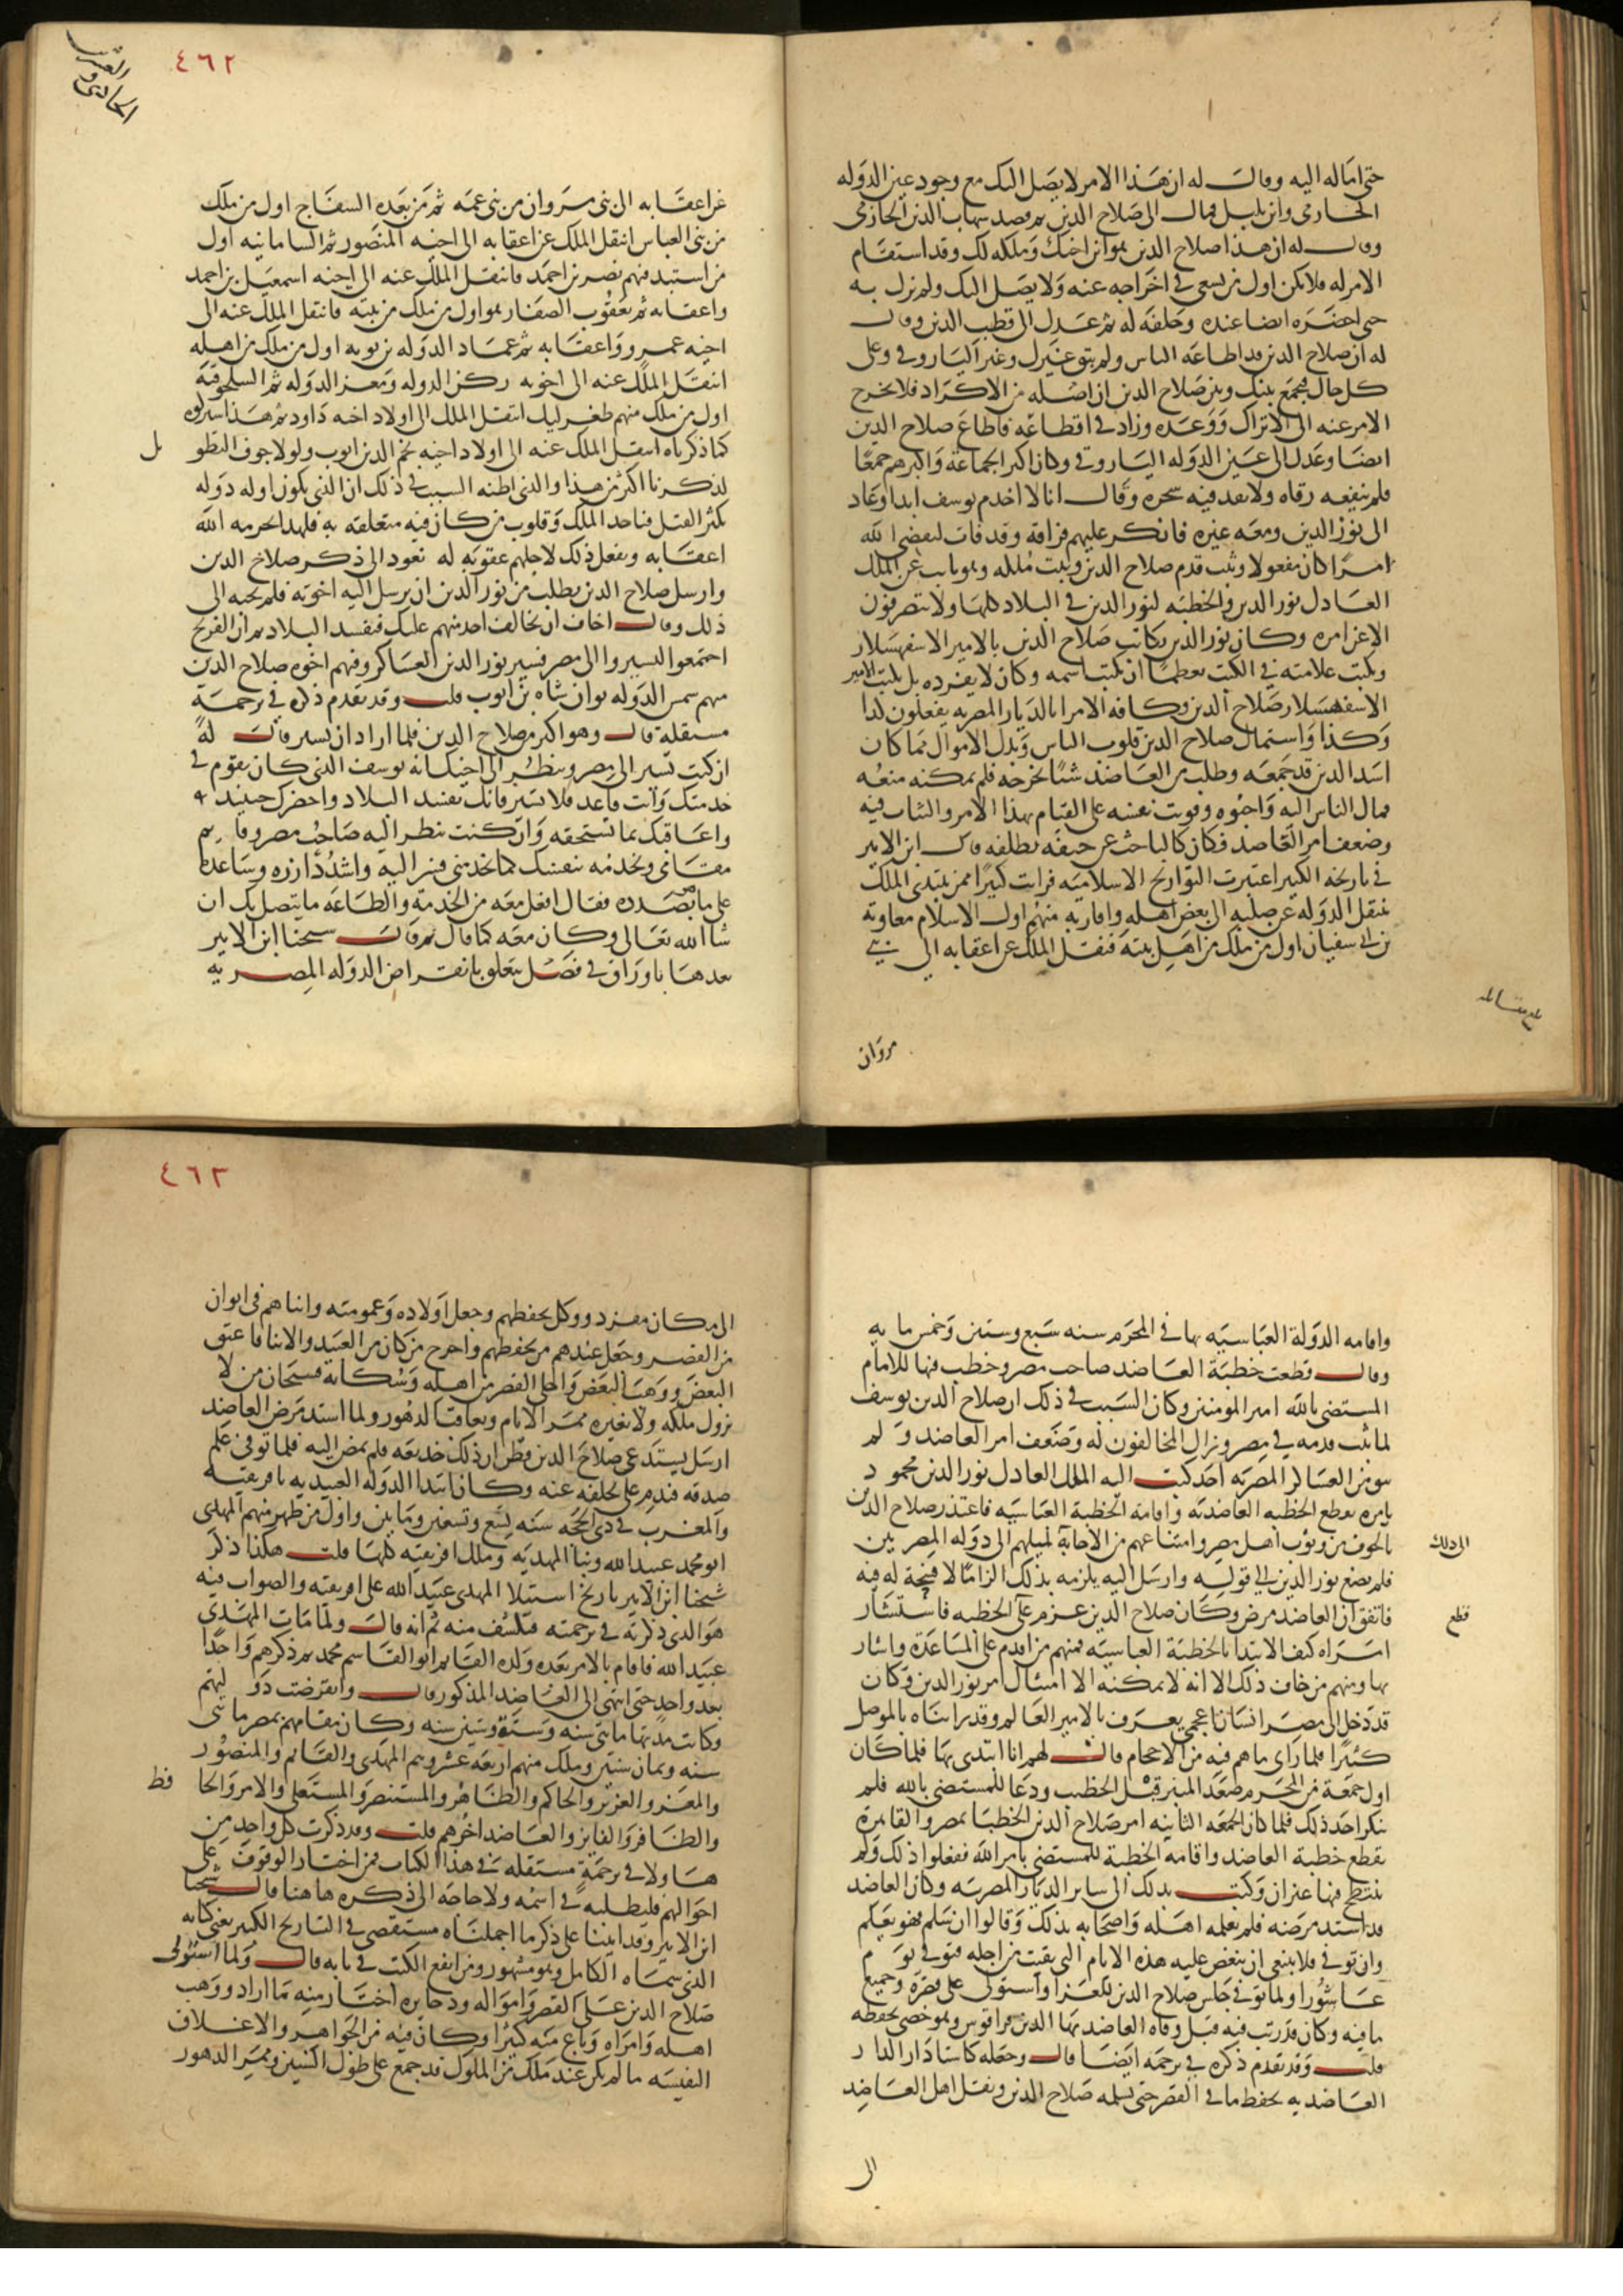 حتى اماله اليه وقال له ان هذا الامر لا يصل اليك مع وجود عين الدوله
الحارمى وابن تليل فمال الى صلاح الدين ثم قصد شهاب الدين الحارمى
وقال له ان هذا صلاح الدين هو ابن اختك وملكه لك وقد استقام
الامر له فلا تكن اول من يسعى فى اخراجه عنه ولا يصل اليك ولم يزل به
حتى احضره ايضا عنده وحلفه له ثم عدل الى قطب الدين وقال
له ان صلاح الدين قد اطاعه الناس ولم يبق غيرك وغير الياروقى وعلى
كل حال فيجمع بينك وبين صلاح الدين ان اصله من الاكراد فلا يخرج
الامر عنه الى الاتراك ووعده وزاد فى اقطاعه فاطاع صلاح الدين
ايضا وعدل الى عين الدوله الياروقى وكان اكبر الجماعة واكثرهم جمعا
فلم ينفعه رقاه ولا نفد فيه سحره وقال انا لا اخدم يوسف ابدا وعاد
الى نور الدين ومعه غيره فانكر عليهم فراقه وقد فات ليقضى الله
امرا كان مفعولا وثبت قدم صلاح الدين وثبت ملكه وهو نايب عن الملك
العادل نور الدين والخطبه لنور الدين فى البلاد كلها ولا يتصرفون
الا عن امره وكان نور الدين يكاتب صلاح الدين بالامير الاسفهسلار
ويكتب علامته فى الكتب تعظيما ان يكتب اسمه وكان لا يفرده بل يكتب الامير
الاسفهسلار صلاح الدين وكافه الامرا بالديار المصريه يفعلون كذا
وكذا واستمال صلاح الدين قلوب الناس وبذل الاموال مما كان
اسد الدين قد جمعه وطلب من العاضد شيا يخرجه فلم يمكنه منعه
فمال الناس اليه واحبوه وقويت نفسه على القيام بهذا الامر والثبات فيه
وضعف امر العاضد فكان كالباحث عن حتفه بظلفه قال ابن الاثير
فى تاريخه الكبير اعتبرت التواريخ الاسلاميه فرايت كثيرا ممن يبتدى الملك
تنتقل الدوله عن صلبه الى بعض اهله واقاربه منهم اول الاسلام معاويه
بن ابى سفيان اول من ملك من اهل بيته فنقل الملك عن اعقابه الى بنى
بلغ مقابله
مروان
٤٦٢
الحادى والعشرين
عن اعقابه الى بنى مروان من بنى عمه ثم من بعده السفاح اول من ملك
من بنى العباس انتقل الملك عن اعقابه الى اخيه المنصور ثم السامانيه اول
من استبد منهم نصر بن احمد فانتقل الملك عنه الى اخيه اسمعيل بن احمد
واعقابه ثم يعقوب الصفار هو اول من ملك من بيته فانتقل الملك عنه الى
اخيه عمرو واعقابه ثم عماد الدوله بن بويه اول من ملك من اهله
انتقل الملك عنه الى اخويه ركن الدوله ومعز الدوله ثم السلجوقيه
اول من ملك منهم طغرلبك انتقل الملك الى اولاد اخيه داود ثم هذا شيركوه
كما ذكرناه انتقل الملك عنه الى اولاد اخيه نجم الدين ايوب ولولا خوف التطويل
لذكرنا اكثر من هذا والذى اظنه السبب فى ذلك ان الذى يكون اوله دوله
يكثر القتل فياخد الملك وقلوب من كان فيه متعلقه به فلهدا يحرمه الله
اعقابه ويفعل ذلك لاجلهم عقوبه له نعود الى ذكر صلاح الدين
وارسل صلاح الدين يطلب من نور الدين ان يرسل اليه اخوته فلم يجبه الى
ذلك وقال اخاف ان يخالف احد منهم عليك فتفسد البلاد ثم ان الفرنج
اجتمعوا ليسيروا الى مصر فسير نور الدين العساكر وفيهم اخوه صلاح الدين
منهم شمس الدوله توران شاه بن ايوب قلت وقد تقدم ذكره فى ترجمة
مستقلة قال وهو اكبر من صلاح الدين فلما اراد ان يسير قال له
ان كنت تسير الى مصر وتنظر الى اخيك انه يوسف الذى كان يقوم فى
خدمتك وانت قاعد فلا تسير فانك تفسد البلاد واحضرك حينيد
واعاقبك بما تستحقه وان كنت تنظر اليه صاحب مصر وقايم
مقامى وتخدمه بنفسك كما تخدمنى فسر اليه واشدد ازره وساعده
على ما بصدده فقال افعل معه من الخدمة والطاعه ما يتصل بك ان
شا الله تعالى وكان معه كما قال ثم قال شيخنا ابن الاثير
بعد هذا باوراق فى فصل يتعلق بانقراض الدوله المصريه
واقامه الدولة العباسيه بها فى المحرم سنه سبع وستين وخمس مايه
وقال قطعت خطبة العاضد صاحب مصر وخطب فيها للامام
المستضى بالله امير المومنين وكان السبب فى ذلك ان صلاح الدين يوسف
لما ثبت قدمه فى مصر وزال المخالفون له وضعف امر العاضد ولم
يبق من العساكر المصريه احد كتب اليه الملك العادل نور الدين محمود
يامره بقطع الخطبه العاضديه واقامه الخطبة العباسيه فاعتذر صلاح الدين
بالخوف من وثوب اهل مصر وامتناعهم من الاجابة لميلهم الى دوله المصريين
الى ذلك
فلم يصغ نور الدين الى قوله وارسل اليه يلزمه بذلك الزاما لا فسحة له فيه
فاتفق ان العاضد مرض وكان صلاح الدين عزم على الخطبه فاستشار
قطع
امراه كيف الابتدا بالخطبة العباسيه فمنهم من اقدم على المساعدة واشار
بها ومنهم من خاف ذلك الا انه لا يمكنه الا امتثال امر نور الدين وكان
قد دخل الى مصر انسان اعجمى يعرف بالامير العالم وقد رايناه بالموصل
كثيرا فلما راى ما هم فيه من الاحجام قال لهم انا ابتدى بها فلما كان
اول جمعة من المحرم صعد المنبر قبل الخطيب ودعا للمستضى بالله فلم
ينكر احد ذلك فلما كان الجمعه الثانيه امر صلاح الدين الخطبا بمصر والقاهرة
بقطع خطبة العاضد واقامه الخطبة للمستضى بامر الله ففعلوا ذلك ولم
ينتطح فيها عنزان وكتب بذلك الى ساير الديار المصريه وكان العاضد
قد اشتد مرضه فلم يعلمه اهله واصحابه بذلك وقالوا ان سلم فهو يعلم
وان توفى فلا ينبغى ان ينغص عليه هذه الايام التى بقيت من اجله فتوفى يوم
عاشورا ولما توفى جلس صلاح الدين للعزا واستولى على قصره وجميع
ما فيه وكان قد رتب فيه قبل وفاه العاضد بها الدين قراقوش وهو خصى يحفظه
قلت وقد تقدم ذكره فى ترجمه ايضا قال وجعله كاستاذ الدار
العاضديه يحفظ ما فى القصر حتى يسلمه صلاح الدين ونقل اهل العاضد
الى
٤٦٣
الى مكان مفرد ووكل بحفظهم وجعل اولاده وعمومته وابناهم فى ايوان
من القصر وجعل عندهم من يحفظهم واخرج من كان من العبيد والاما فاعتق
البعض ووهب البعض واخلى القصر من اهله وسكانه فسبحان من لا
يزول ملكه ولا يغيره ممر الايام وتعاقب الدهور ولما اشتد مرض العاضد
ارسل يستدعى صلاح الدين فظن ان ذلك خديعه فلم يمض اليه فلما توفى علم
صدقه فندم على تخلفه عنه وكان ابتدا الدوله العبيديه بافريقيه
والمغرب فى ذى الحجه سنه تسع وتسعين ومايتين واول من ظهر منهم المهدى
ابو محمد عبيد الله وبنا المهديه وملك افريقيه كلها قلت هكذا ذكر
شيخنا ابن الاثير تاريخ استيلا المهدى عبيد الله على افريقيه والصواب فيه
هو الذى ذكرته فى ترجمته فيكشف منه ثم انه قال ولما مات المهدى
عبيد الله فاقام بالامر بعده ولده القايم ابو القاسم محمد ثم ذكرهم واحدا
بعد واحد حتى انتهى الى العاضد المذكور قال وانقرضت دولتهم
وكانت مدتها مايتى سنه وستة وستين سنه وكان مقامهم بمصر مايتى
سنه وثمان سنين وملك منهم اربعه عشر وهم المهدى والقايم والمنصور
والمعز والعزيز والحاكم والظاهر والمستنصر والمستعلى والامر والحافظ
والظافر والفايز والعاضد اخرهم قلت وقد ذكرت كل واحد من
هاولا فى ترجمة مستقله فى هذا الكتاب فمن اختار الوقوف على
احوالهم فليطلبه فى اسمه ولا حاجه الى ذكره هاهنا قال شيخنا
ابن الاثير وقد اتينا على ذكر ما اجملناه مستقصى فى التاريخ الكبير يعنى كتابه
الذى سماه الكامل وهو مشهور ومن انفع الكتب فى بابه قال ولما استولى
صلاح الدين على القصر وامواله وذخايره اختار منه ما اراد ووهب
اهله وامراه وباع منه كثيرا وكان فيه من الجواهر والاعلاق
النفيسه ما لم يكن عند ملك من الملوك قد جمع على طول السنين وممر الدهور